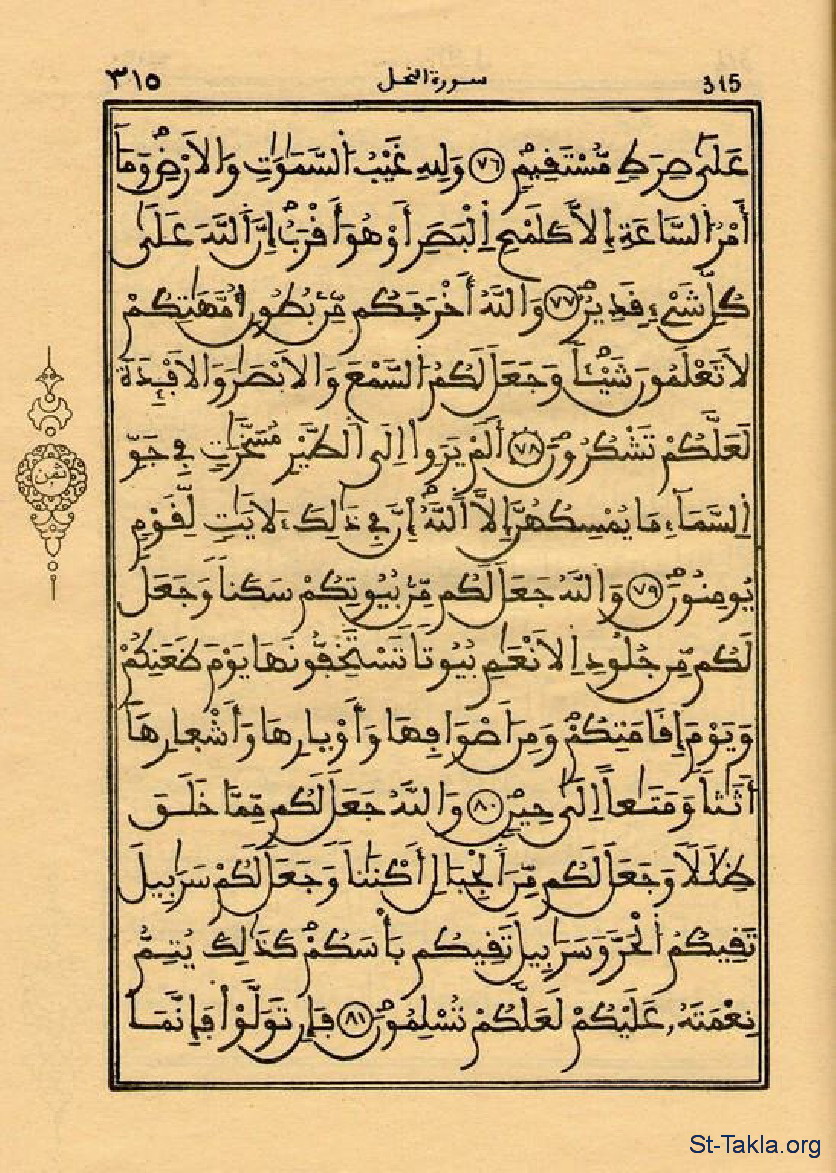 ٣١٥ سورة النحل 315
عَلَىٰ صِرَٰطٖ مُّسْتَقِيمٖۖ ٧٦ وَلِلهِ غَيْبُ اُ۬لسَّمَٰوَٰتِ وَالَارْضِۖ وَمَآ
أَمْرُ اُ۬لسَّاعَةِ إِلَّا كَلَمْحِ اِ۬لْبَصَرِ أَوْ هُوَ أَقْرَبُۖ إِنَّ اَ۬للَّهَ عَلَىٰ
كُلِّ شَےْءٖ قَدِيرٞۖ ٧٧ وَاللَّهُ أَخْرَجَكُم مِّنۢ بُطُونِ أُمَّهَٰتِكُمْ
لَا تَعْلَمُونَ شَيْـٔاٗۖ وَجَعَلَ لَكُمُ اُ۬لسَّمْعَ وَالَابْصَٰرَ وَالَافْـِٕدَةَ
لَعَلَّكُمْ تَشْكُرُونَۖ ٧٨ أَلَمْ يَرَوِاْ اِلَى اَ۬لطَّيْرِ مُسَخَّرَٰتٖ فِے جَوِّ
اِ۬لسَّمَآءِ مَا يُمْسِكُهُنَّ إِلَّا اَ۬للَّهُۖ إِنَّ فِے ذَٰلِكَ ءَلَايَٰتٖ لِّقَوْمٖ
يُومِنُونَۖ ٧٩ وَاللَّهُ جَعَلَ لَكُم مِّنۢ بُيُوتِكُمْ سَكَناٗ وَجَعَلَ
لَكُم مِّن جُلُودِ اِ۬لَانْعَٰمِ بُيُوتاٗ تَسْتَخِفُّونَهَا يَوْمَ ظَعَنِكُمْ
وَيَوْمَ إِقَامَتِكُمْۖ وَمِنَ اَصْوَافِهَا وَأَوْبارِهَا وَأَشْعارِهَآ
أَثَٰثاٗ وَمَتَٰعاً اِلَىٰ حِينٖۖ ٨٠ وَاللَّهُ جَعَلَ لَكُم مِّمَّا خَلَقَ
ظِلَٰلاٗ وَجَعَلَ لَكُم مِّنَ اَ۬لْجِبَالِ أَكْنَٰناٗ وَجَعَلَ لَكُمْ سَرَٰبِيلَ
تَقِيكُمُ اُ۬لْحَرَّ وَسَرَٰبِيلَ تَقِيكُم بَأْسَكُمْۖ كَذَٰلِكَ يُتِمُّ
نِعْمَتَهُۥ عَلَيْكُمْ لَعَلَّكُمْ تُسْلِمُونَۖ ٨١ فَإِن تَوَلَّوْاْ فَإِنَّمَا
ثمن
St-Takla.org